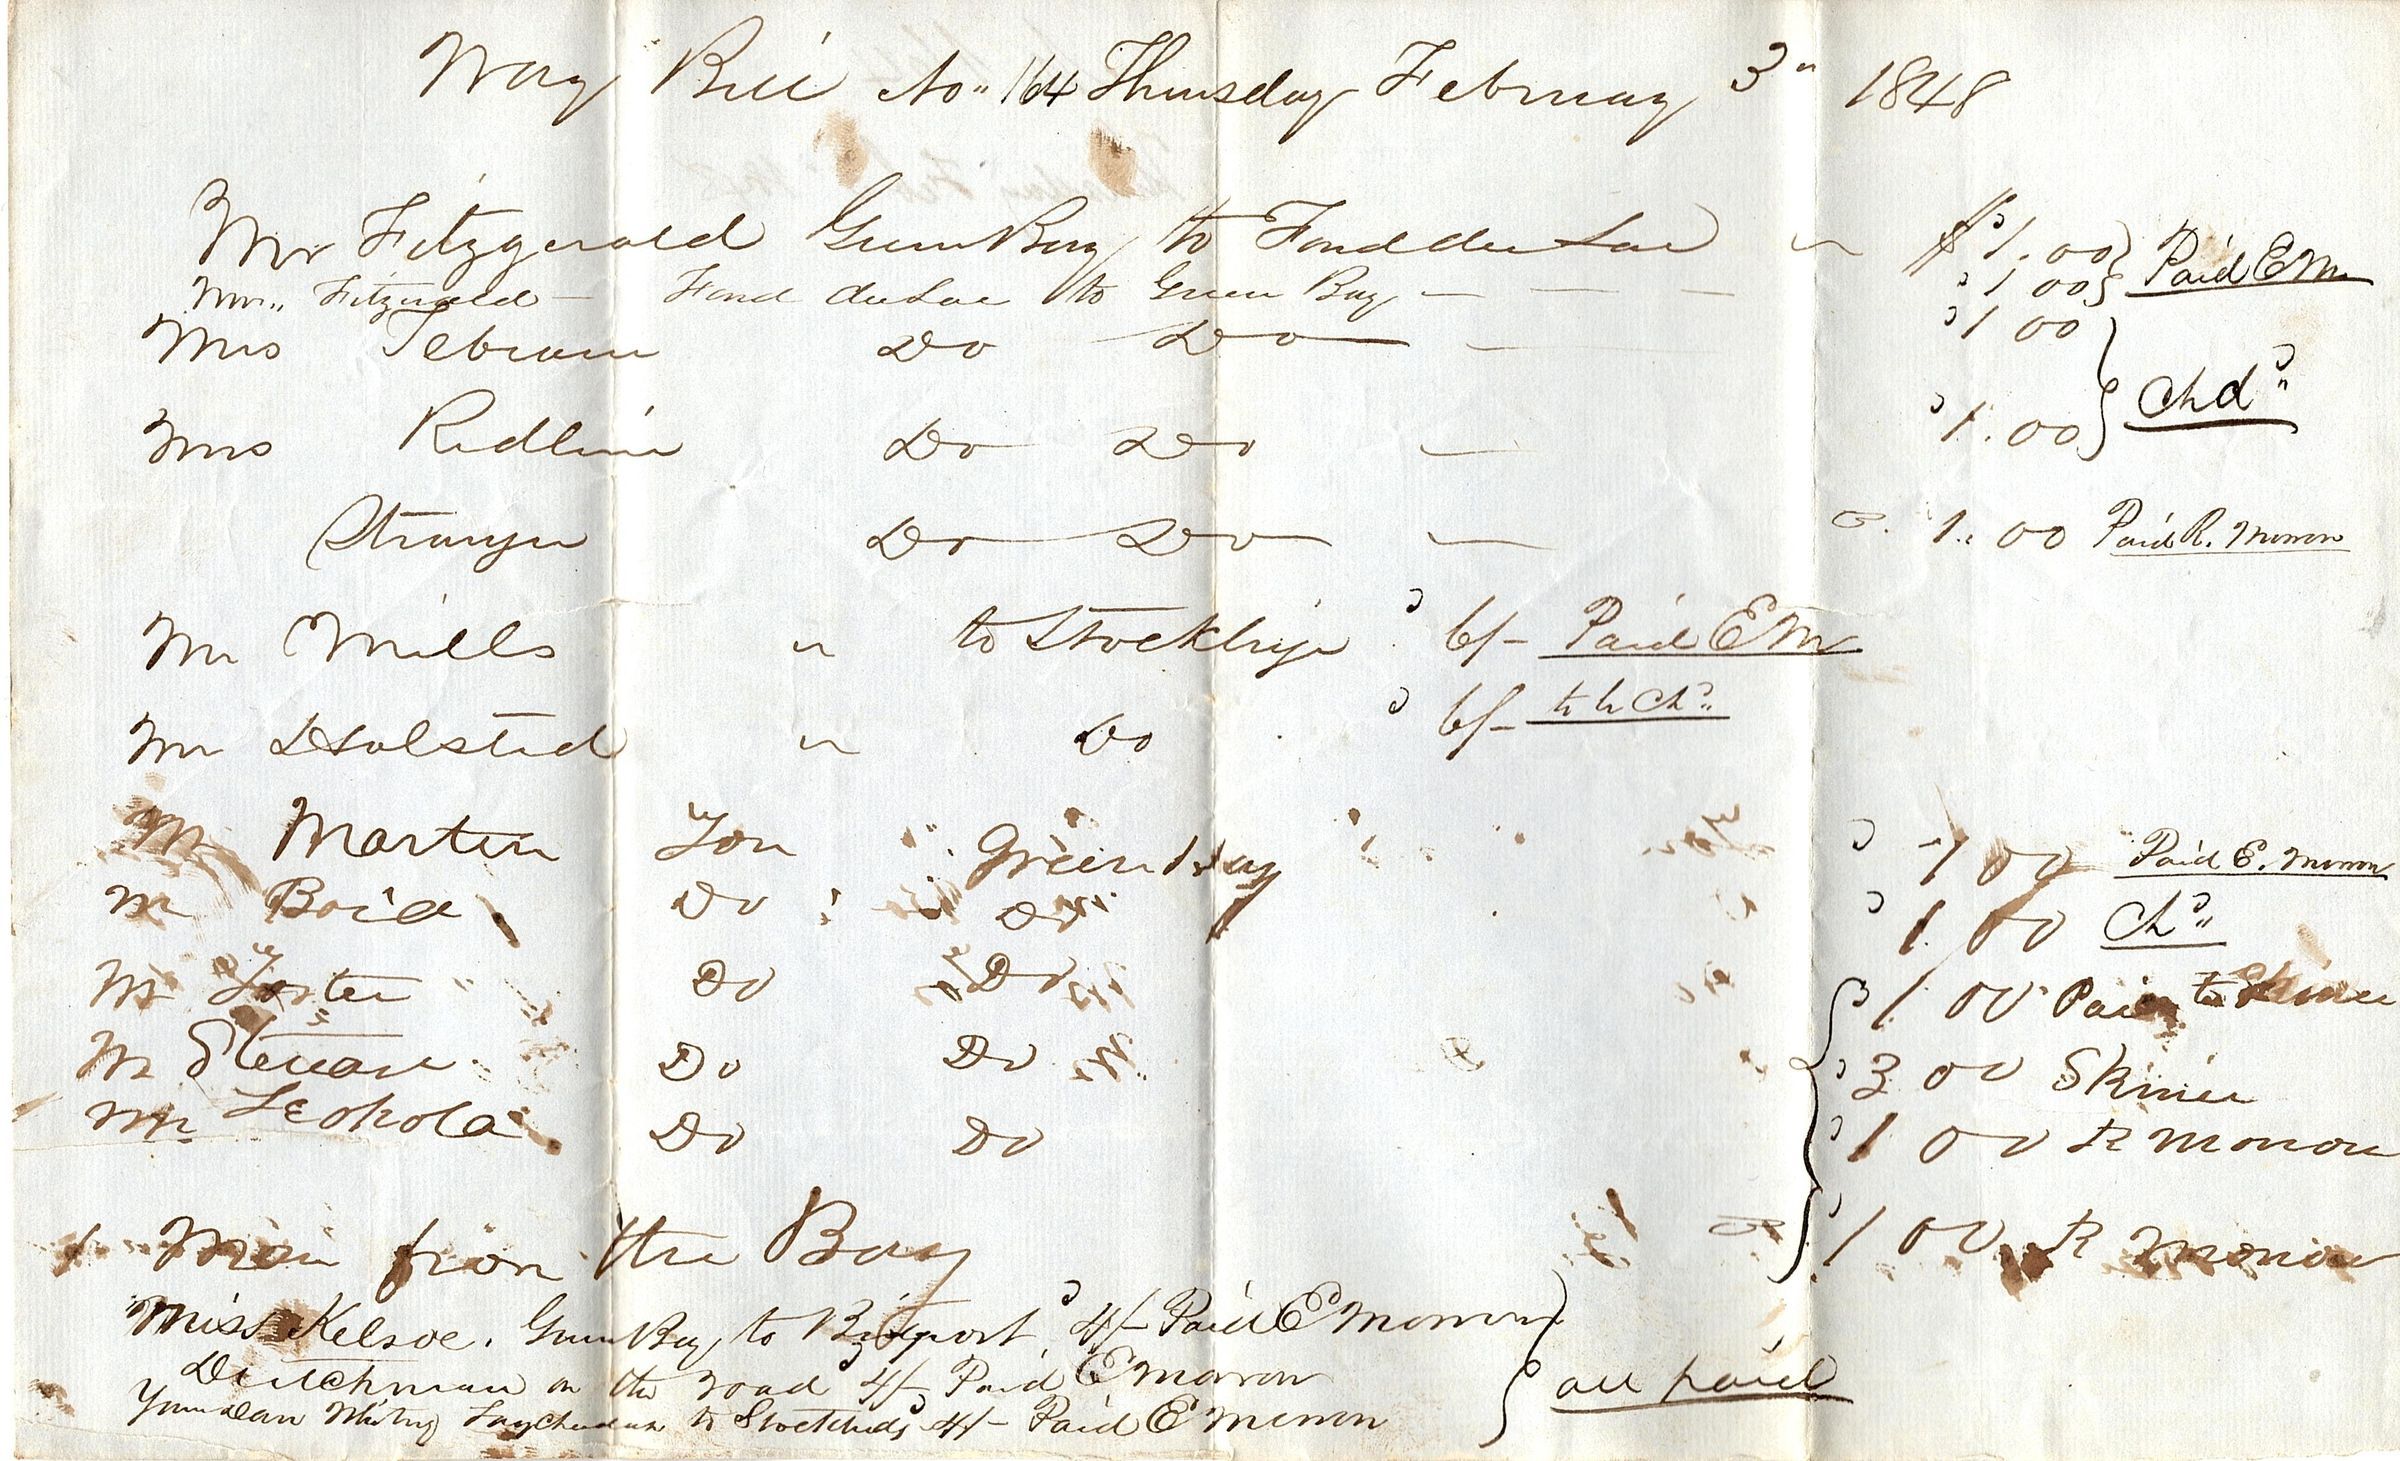 Way Bill No" 164 Thursday February 3" 1848
Mr Fitzgerald Green Bay to Fond du Lac $1.00 } Paid E M
Mr" Fitzgerald — Fond du Lac to Green Bay — — — 1 00 }
Mrs Do Do — 1 00 } Chd"
Mrs Do Do — 1.00 }
Stranger Do Do — 1.. 00 Paid R. Morrow
Mr Mills " to Stockbrige 6/– Paid E M
Mr Halsted " Do 6/– Ch"
Mr Martin Fon Green bay 1 00 Paid E. Morrow
M Boid Do Do 1 00 Ch"
M Foster Do Do 1 00 Paid to Skiner
M Steward Do Do 3 00 Skiner
Mr Do Do 1 00 R Morrow
1 Man from the Bay 1 00 R Morrow
Miss Kelsoe. Green Bay to Bridgport 4/– Paid E Morrow }
Dutchman on the road 4/– Paid E Morrow } all paid
to 4/– Paid E Morrow